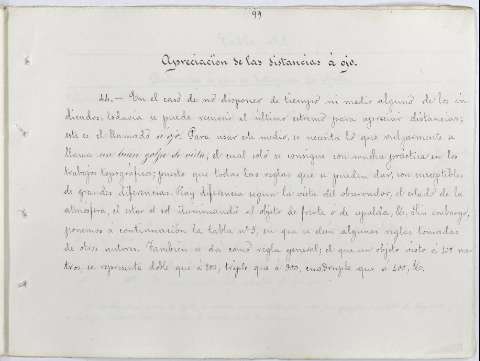 99
Apreciacion de las distancias á ojo.
44.— En el caso de nó disponer de tiempo ni medio alguno de los in
dicados, todavía se puede recurrir al último estremo para apreciar distancias;
este es el llamado á ojo. Para usar este medio, se necesita lo que vulgarmente se
llama un buen golpe de vista, el cual solo se consigue con mucha práctica en los
trabajos topográficos; puesto que todas las reglas que se puedan dar, son susceptibles
de grandes diferencias. Hay diferencia segun la vista del observador, el estado de la
atmósfera, el estar el sol iluminando al objeto de frente ó de espalda, &. Sin embargo,
ponemos á continuacion la tabla nº 3, en que se dan algunas reglas tomadas
de otros autores. Tambien se dá como regla general; el que un objeto visto á 100 me
tros, se representa doble que á 200, triple que á 300, cuadruple que á 400, &.